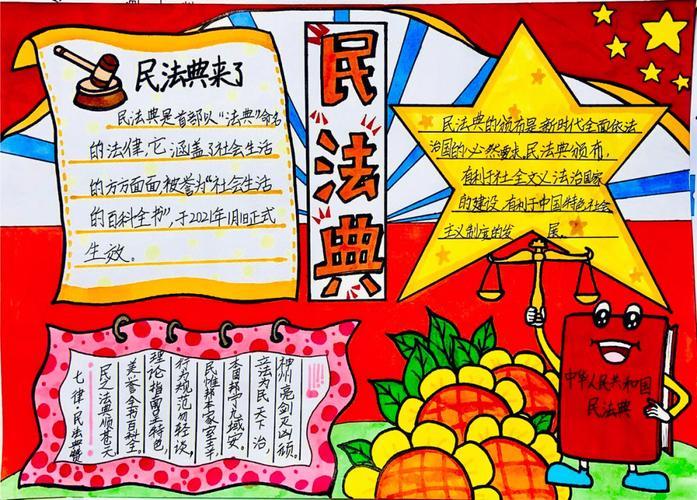 民法典来了
民法典是首部以“法典”命名
的法律，它涵盖了社会生活
的方方面面被誉为“社会生活
的百科全书”，于2021年1月1日正式
生效。
民法典
民法典的颁布是新时代全面依法
治国的必然要求，民法典颁布，
有利于社会主义法治国家
的建设，有利于中国特色社会
主义制度的发展。
七律·民法典赞
民之法典顺甚天
美誉全书百科呈
理论指南呈特色，
行为规范有轻谈，
民惟邦本家至幸，
本固邦宁九域安。
立法为民天下治，
神州亮剑灭凶顽。
中华人民共和国
民法典